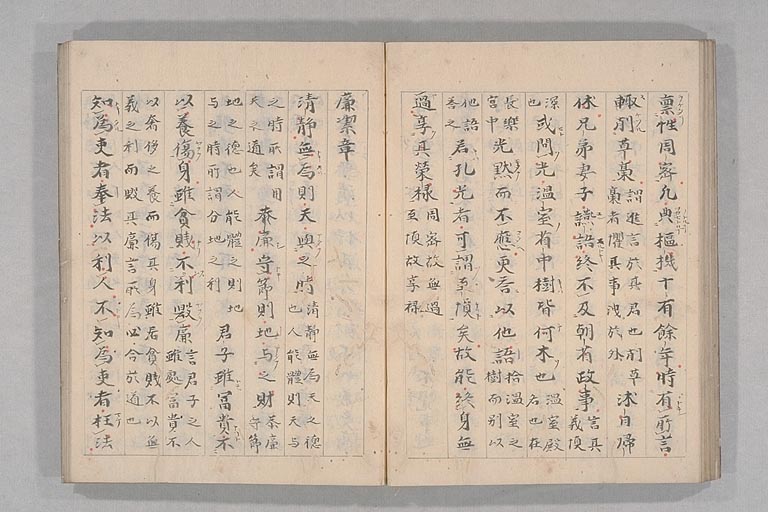 禀性周密凡典樞機十有餘年時有所言
輙削草藁謂進言於其君也削草藁者懼其事洩於外沐日歸
休兄弟妻子讌語終不及朝省政事言其義慎
深也或問光溫室省中樹皆何木也溫室殿名也在
長樂宮中光默而不應更荅以他語拾溫室之樹而别以
他語荅之若孔光者可謂至慎矣故能終身無
過享其榮祿周密故無過至慎故享祿
廉潔章
清静無為則天與之時清静無為天之德也人能體則天与
之時所謂用天之道矣恭廉守節則地与之財恭廉守節
地之德也人能體之則地与之時所謂分地之利君子雖富貴不
以養傷身雖貧賤不利毀廉言君子之人雖處富貴不
以奢侈之養而傷其身雖居貧賤不以無義之利而毀其廉言所為四合於道也
知為吏者奉法以利人不知為吏者枉法